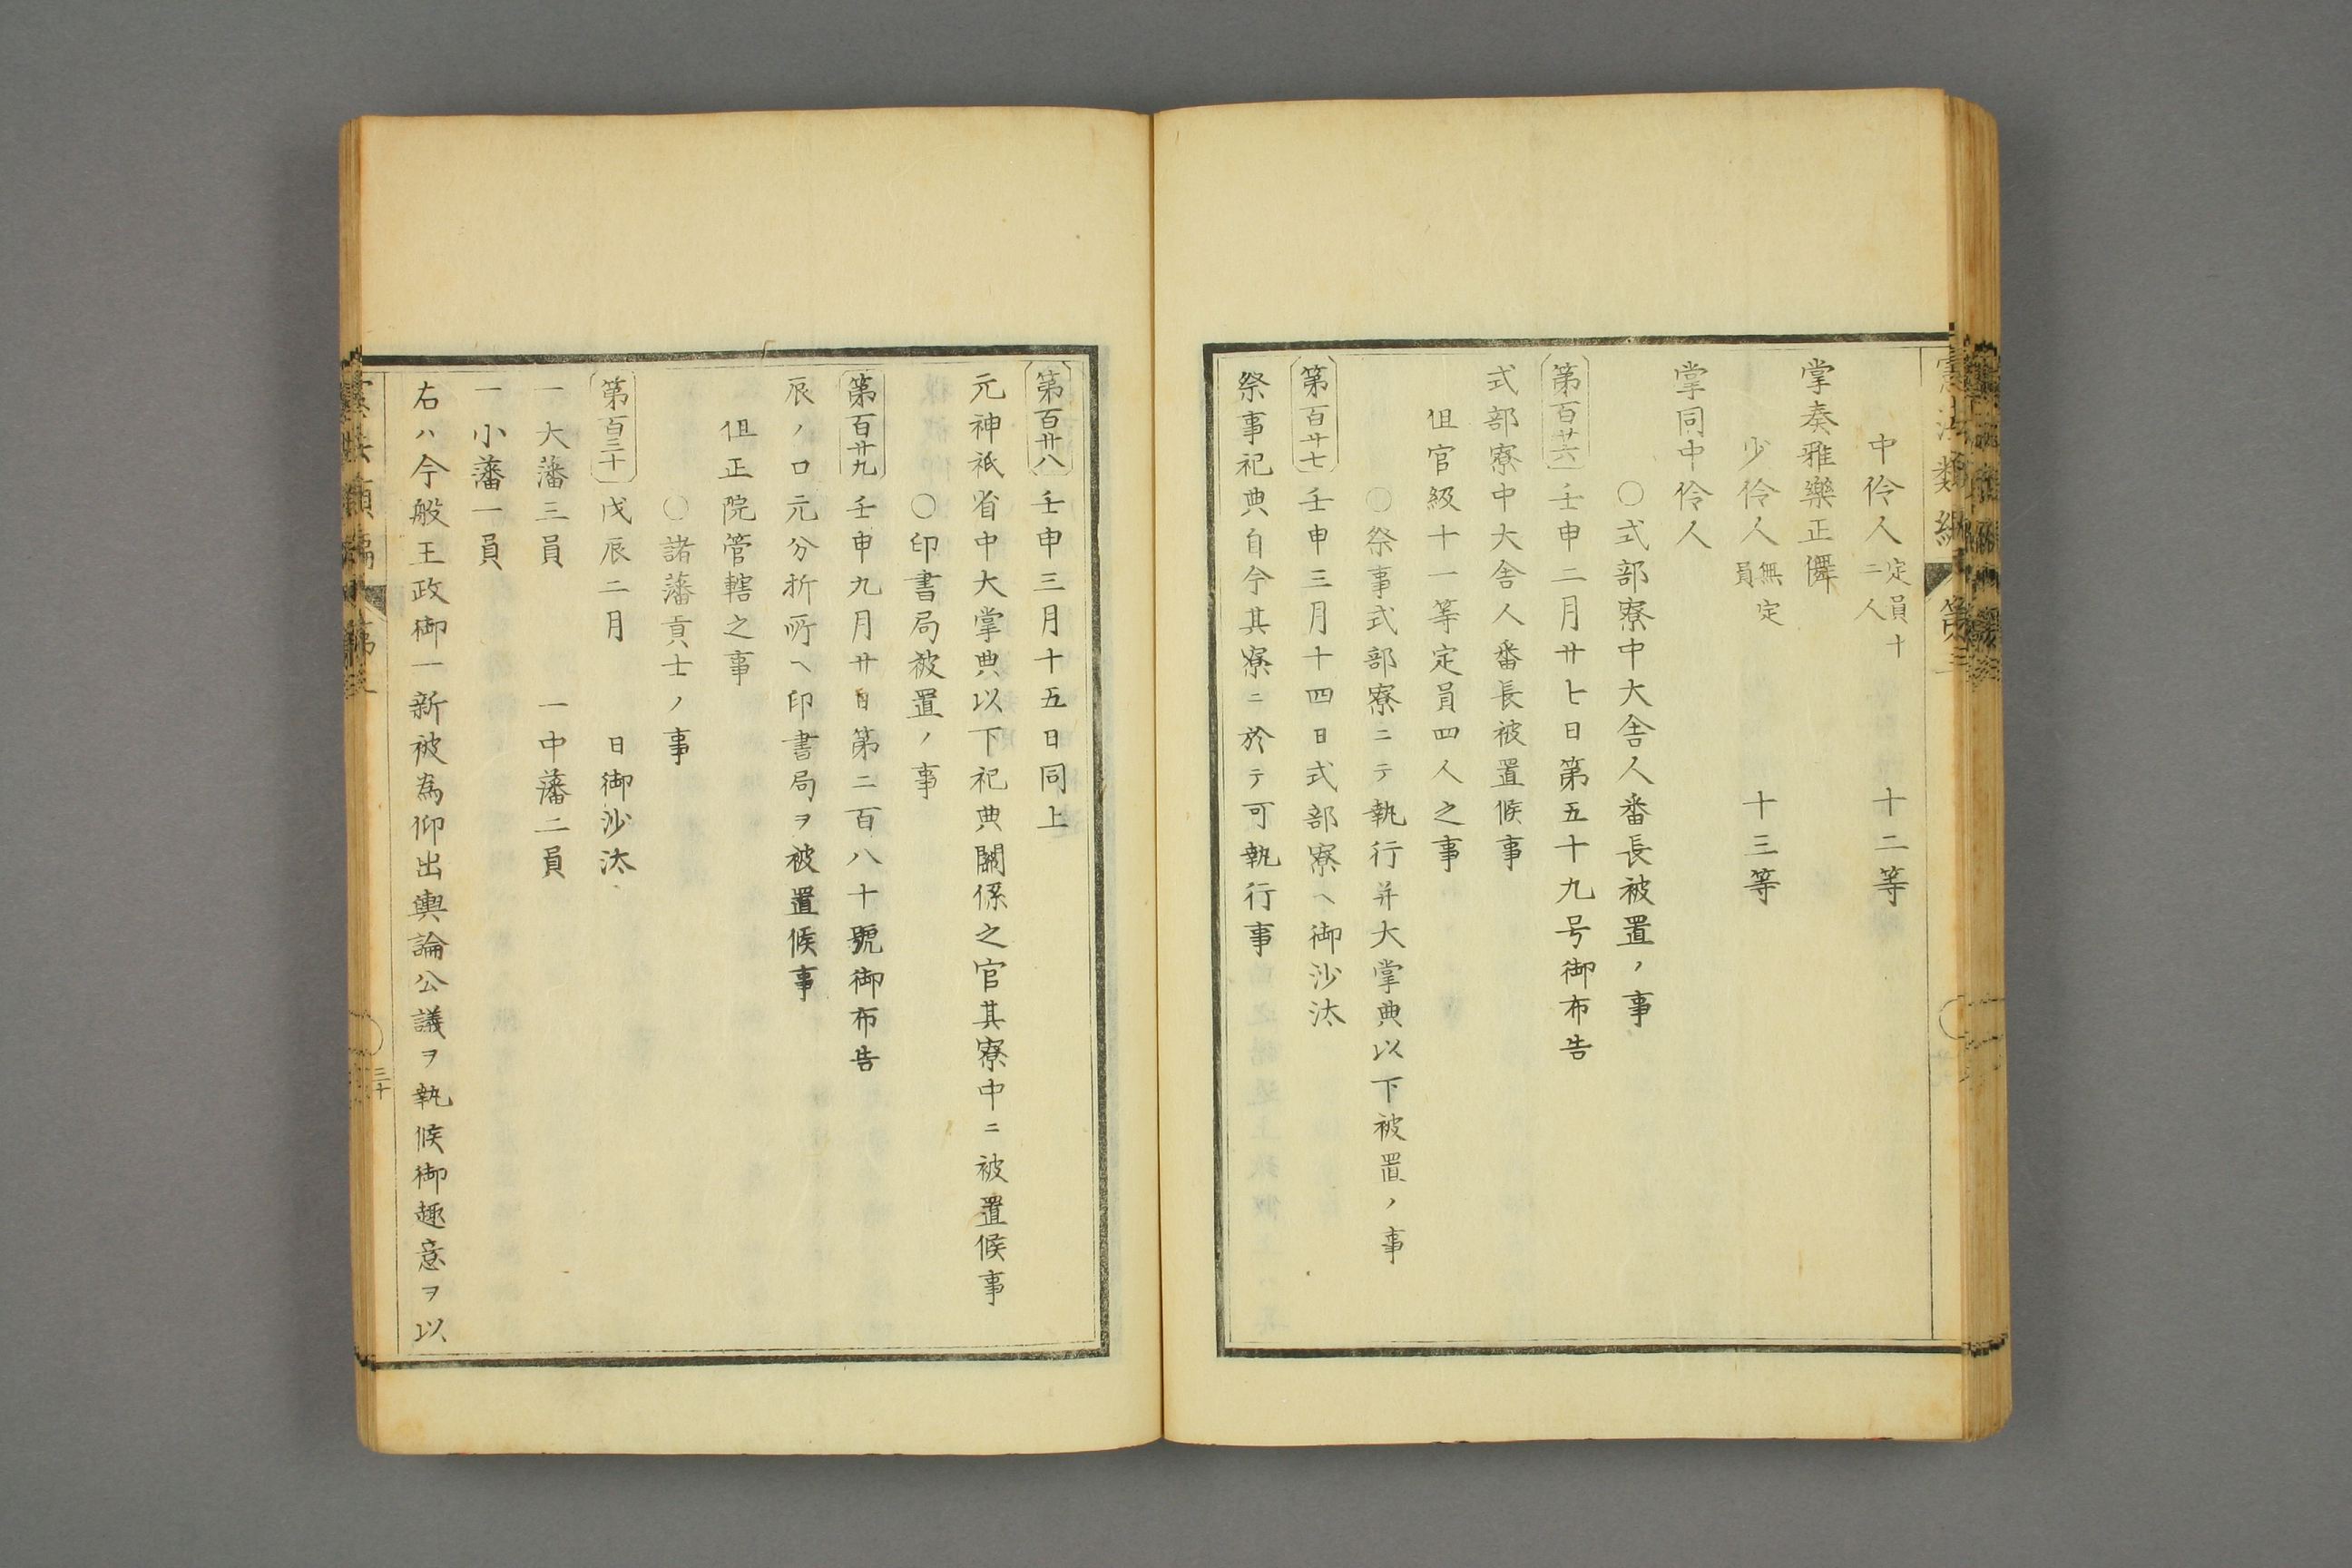 中伶人 定員十二人 十二等
掌奏雅樂正儛
少伶人 無定員 十三等
掌同中伶人
〇式部寮中大舎人番長被置ノ事
第百廿六 壬申二月廿七日第五十九号御布告
式部寮中大舎人番長被置候事
但官級十一等定員四人之事
〇祭事式部寮ニテ執行并大掌典以下被置ノ事
第百廿七 壬申三月十四日式部寮ヘ御沙汰
祭事祀典自今其寮ニ於テ可執行事
第百廿八 壬申三月十五日同上
元神祇省中大掌典以下祀典關係之官其寮中ニ被置候事
〇印書局被置ノ事
第百廿九 壬申九月廿日第二百八十號御布告
辰ノ口元分析所ヘ印書局ヲ被置候事
但正院管轄之事
〇諸藩貢士ノ事
第百三十 戊辰二月 日御沙汰
一大藩三員 一中藩二員
一小藩一員
右ハ今般王政御一新被為仰出輿論公議ヲ執候御趣意ヲ以
三十